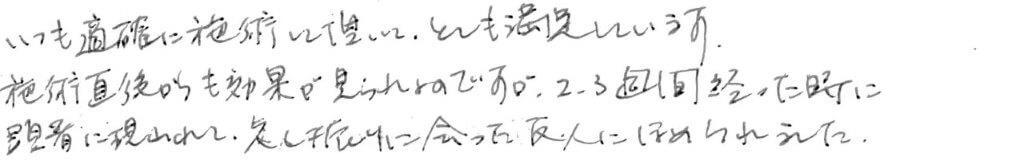 いつも適確に施術して頂いて、とても満足しています。
施術直後からも効果が見られるのですが、2、3週間経った時に
顕著に現われて、久し振りに会った友人にほめられました。